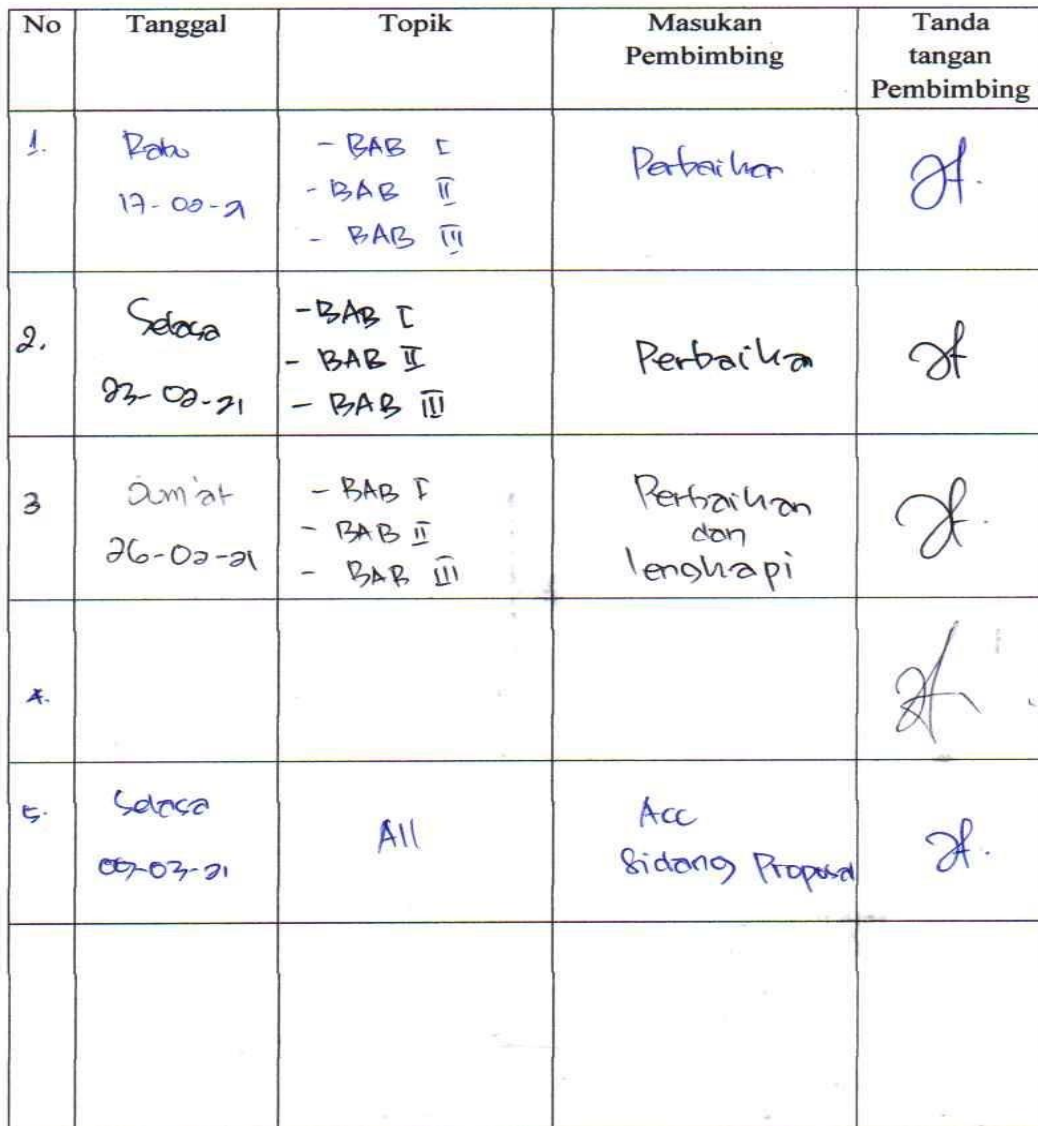 No Tanggal Topik Masukan Pembimbing Tanda tangan Pembimbing
1. Rabu 17-02-21 - BAB I - BAB II - BAB III Perbaikan
2. Selasa 23-02-21 - BAB I - BAB II - BAB III Perbaika
3 Jum'at 26-02-21 - BAB I - BAB II - BAB III Perbaikan dan lengkapi
4.
5. Selasa -03-21 All Acc Sidang Proposal